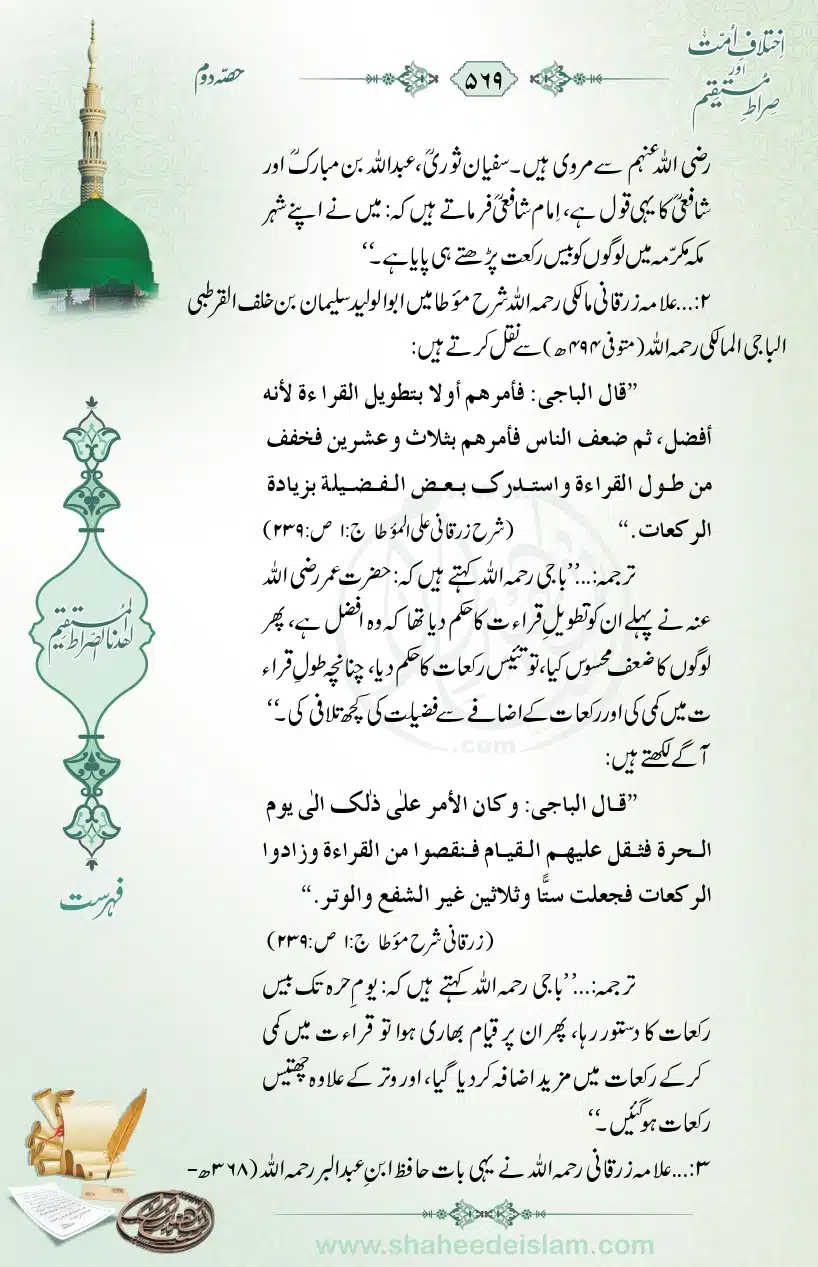 اِختلافِ اُمّت
اور
صِراطِ مُستقیم
۵۶۹
حصّہ دوم
رضی اللہ عنہم سے مروی ہیں۔ سفیان ثوریؒ، عبداللہ بن مبارکؒ اور
شافعیؒ کا یہی قول ہے، اِمام شافعیؒ فرماتے ہیں کہ: میں نے اپنے شہر
مکہ مکرّمہ میں لوگوں کو بیس رکعت پڑھتے ہی پایا ہے۔“
۲:...علامہ زرقانی مالکی رحمہ اللہ شرح مؤطا میں ابوالولید سلیمان بن خلف القرطبی
الباجی المالکی رحمہ اللہ (متوفی ۴۹۴ھ) سے نقل کرتے ہیں:
”قال الباجی: فأمرهم أولا بتطويل القراءة لأنه
أفضل، ثم ضعف الناس فأمرهم بثلاث وعشرين فخفف
من طول القراءة واستدرک بعض الفضيلة بزيادة
الركعات.“ (شرح زرقانی علی المؤطا ج:۱ ص:۲۳۹)
ترجمہ:...”باجی رحمہ اللہ کہتے ہیں کہ: حضرت عمر رضی اللہ
عنہ نے پہلے ان کو تطویلِ قراءت کا حکم دیا تھا کہ وہ افضل ہے، پھر
لوگوں کا ضعف محسوس کیا، تو تئیس رکعات کا حکم دیا، چنانچہ طولِ قراء
ت میں کمی کی اور رکعات کے اضافے سے فضیلت کی کچھ تلافی کی۔“
آگے لکھتے ہیں:
”قال الباجی: وكان الأمر علٰى ذٰلک الٰى يوم
الحرة فثقل عليهم القيام فنقصوا من القراءة وزادوا
الركعات فجعلت ستًّا وثلاثين غير الشفع والوتر.“
(زرقانی شرح مؤطا ج:۱ ص:۲۳۹)
ترجمہ:...”باجی رحمہ اللہ کہتے ہیں کہ: یومِ حرہ تک بیس
رکعات کا دستور رہا، پھر ان پر قیام بھاری ہوا تو قراءت میں کمی
کرکے رکعات میں مزید اضافہ کردیا گیا، اور وتر کے علاوہ چھتیس
رکعات ہوگئیں۔“
۳:...علامہ زرقانی رحمہ اللہ نے یہی بات حافظ ابنِ عبدالبر رحمہ اللہ (۳۶۸ھ-
اهدنا الصراط المستقیم
فہرست
.com
www.shaheedeislam.com